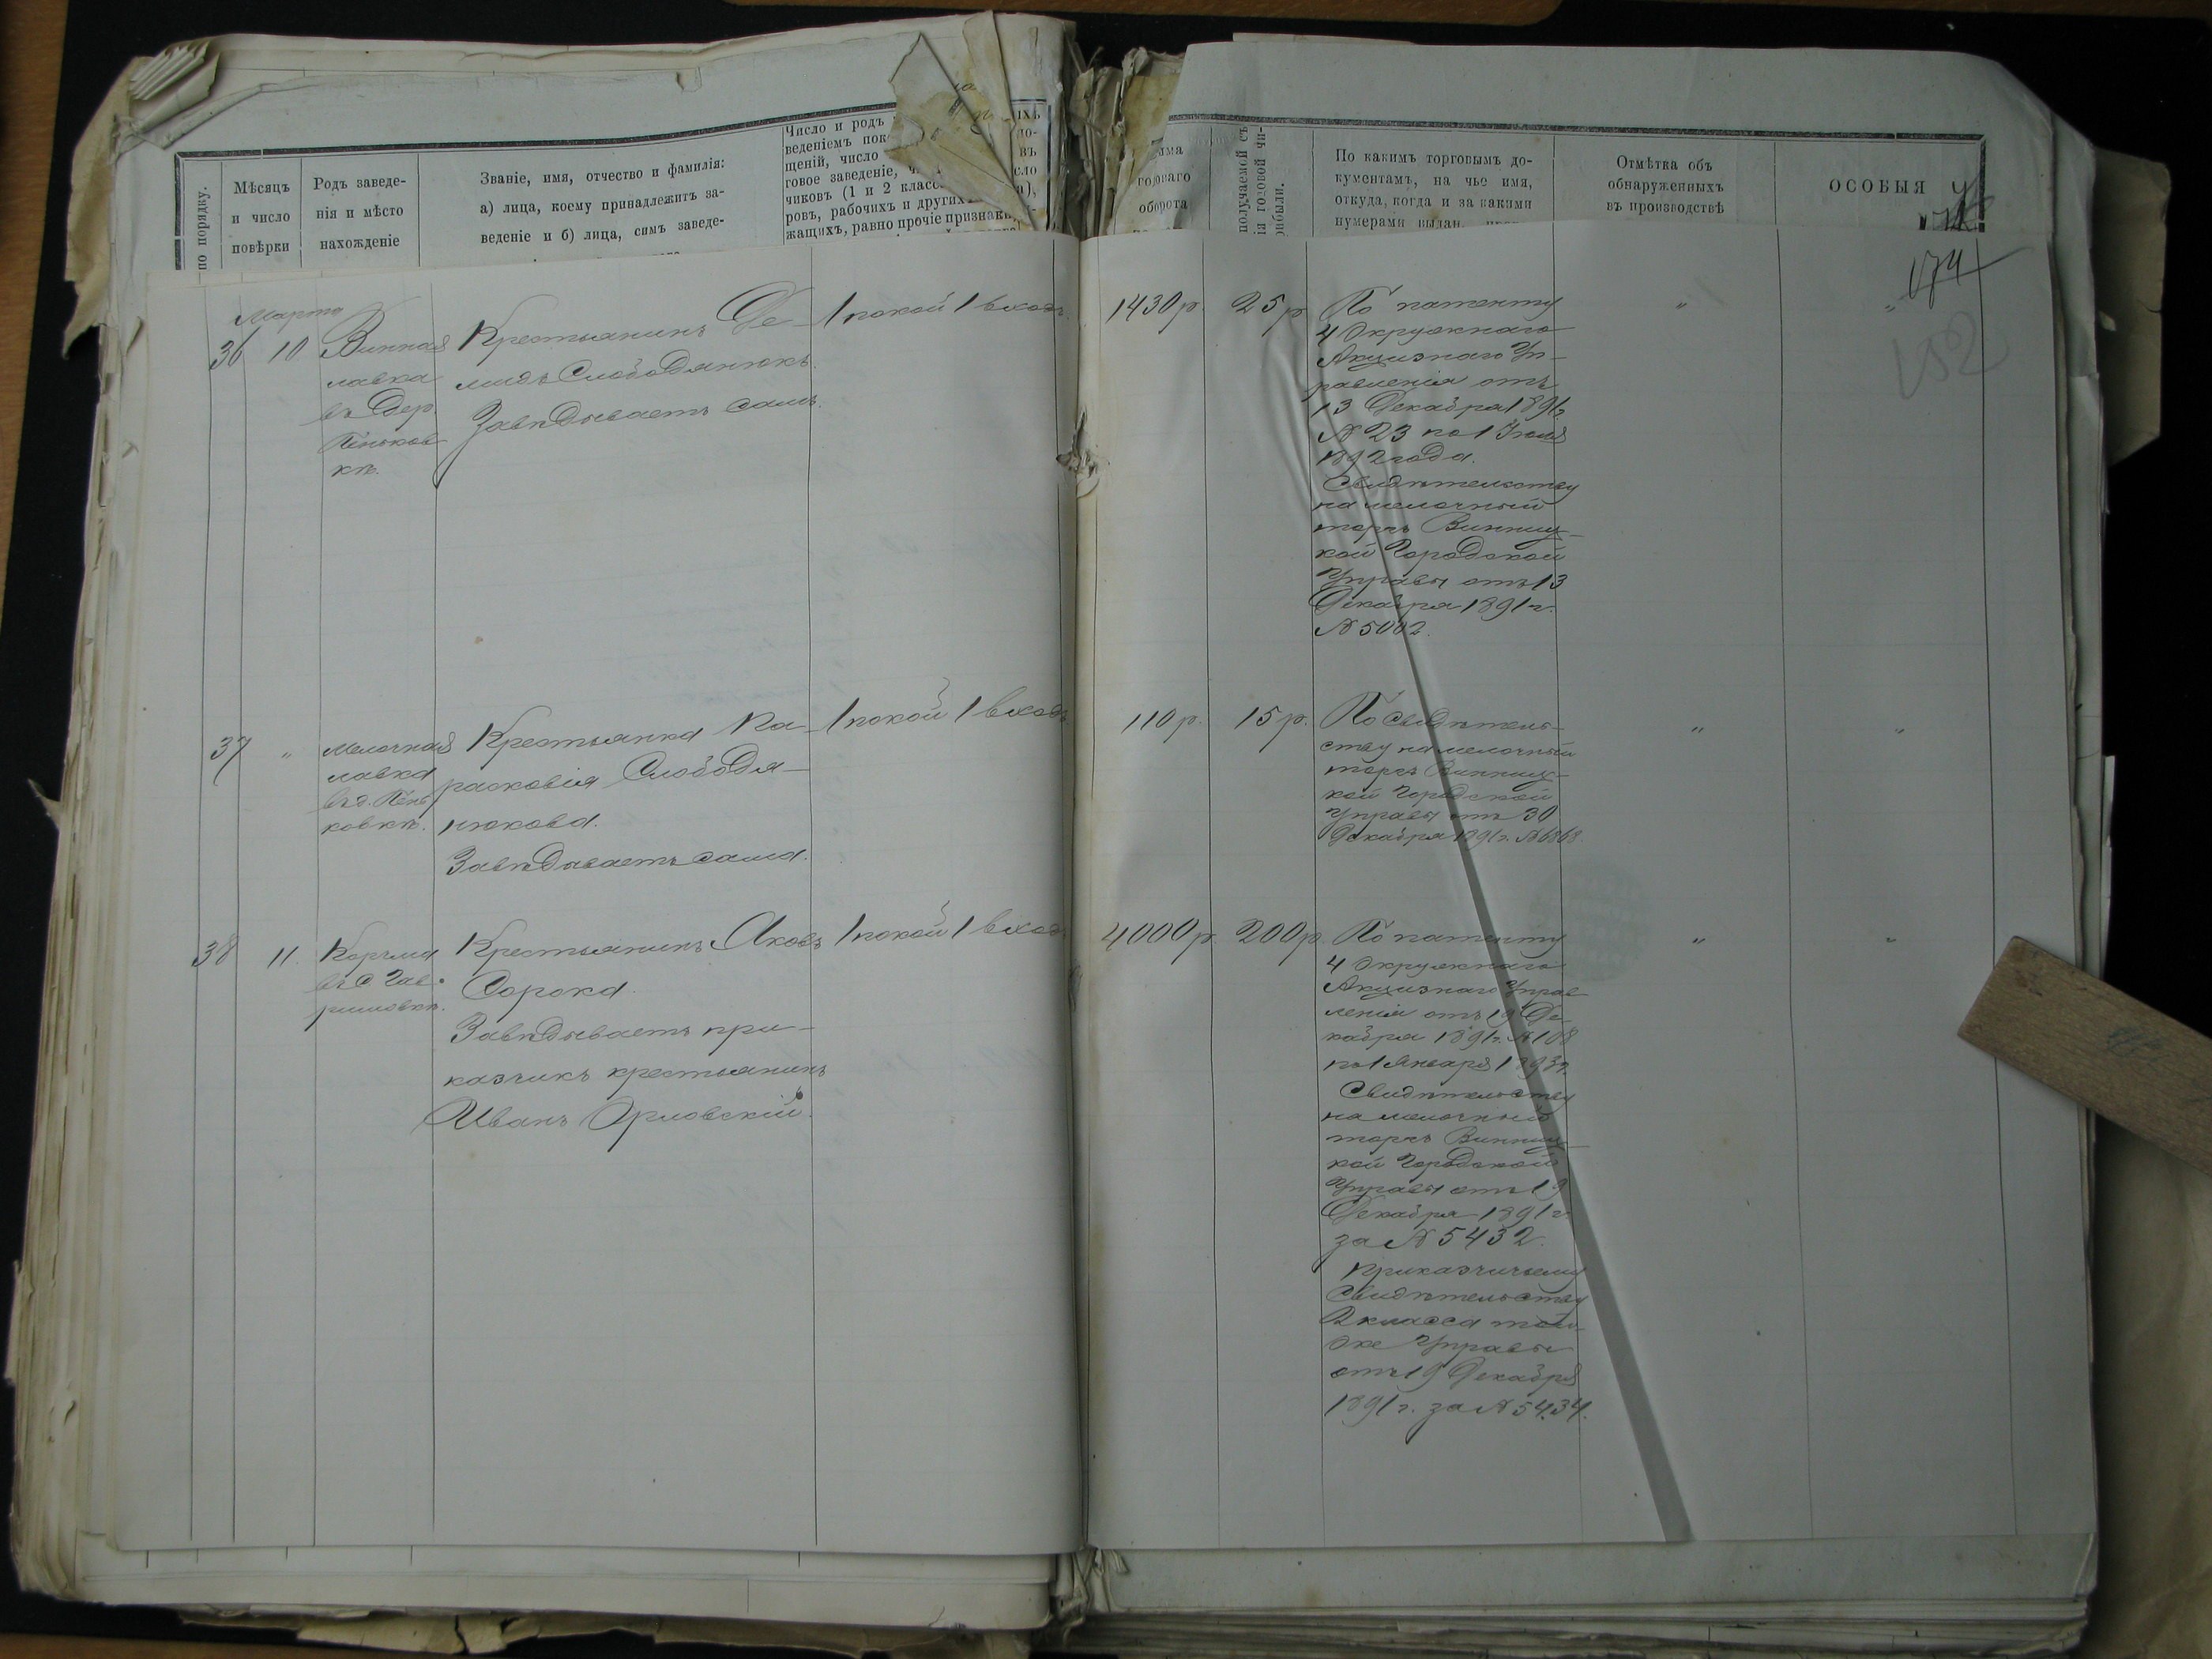 по порядку.
Мѣсяцъ
и число
повѣрки
Родъ заведе-
нія и мѣсто
нахожденіе
Званіе, имя, отчество и фамилія:
а) лица, коему принадлежитъ за-
веденіе и б) лица, симъ заведе-
Число и родъ
веденіемъ
щеній, число
говое заведеніе,
чиковъ (1 и 2
ровъ, рабочихъ и другихъ
жащихъ, равно прочіе
годоваго
оборота
получаемой съ
годовой чи-
По какимъ торговымъ до-
кументамъ, на чье имя,
откуда, когда и за какими
нумерами выдан
Отмѣтка объ
обнаруженныхъ
въ производствѣ
ОСОБЫЯ
174
152
Марта
36
10
Винная
лавка
въ Дер.
Пеньков
кѣ.
Крестьянинъ Де-
мидъ Слободянюкъ.
Завѣдываетъ самъ.
1 покой 1 входъ.
1430 р.
25 р
По патенту
4 Окружнаго
Акцизнаго Уп-
равленія отъ
13 Декабря 1891 г.
№ 23 по 1 Іюля
1892 года.
Свидѣтельству
на мелочный
торгъ Винниц-
кой Городской
Управы отъ 13
Декабря 1891 г.
№ 5002.
"
"
37
"
Мелочная
лавка
въ д. Пень
ковкѣ.
Крестьянка Па-
расковія Слободя-
нюкова.
Завѣдаваетъ сама.
1 покой 1 входъ
110 р.
15 р.
По свидѣтель-
ству на мелочный
торгъ Винниц-
кой Городской
Управы отъ 30
Декабря 1891 г. № 6868.
"
"
38
11
Корчма
въ с Гав-
ришовкѣ.
Крестьянинъ Яковъ
Сорока.
Завѣдываетъ при-
казчикъ крестьянинъ
Иванъ Орловскій.
1 покой 1 входъ
4000 р.
200 р.
По патенту
4 Окружнаго
Акцизнаго Управ
ленія отъ 19 Де-
кабря 1891 г. № 108
по 1 Января 1893 г.
Свидѣтельству
на мелочный
торгъ Винниц-
кой Городской
Управы отъ 19
Декабря 1891 г.
за № 5432.
Приказчичьему
Свидѣтельству
2 класса той-
же Управы
отъ 19 Декабря
1891 г. за № 5434.
"
"